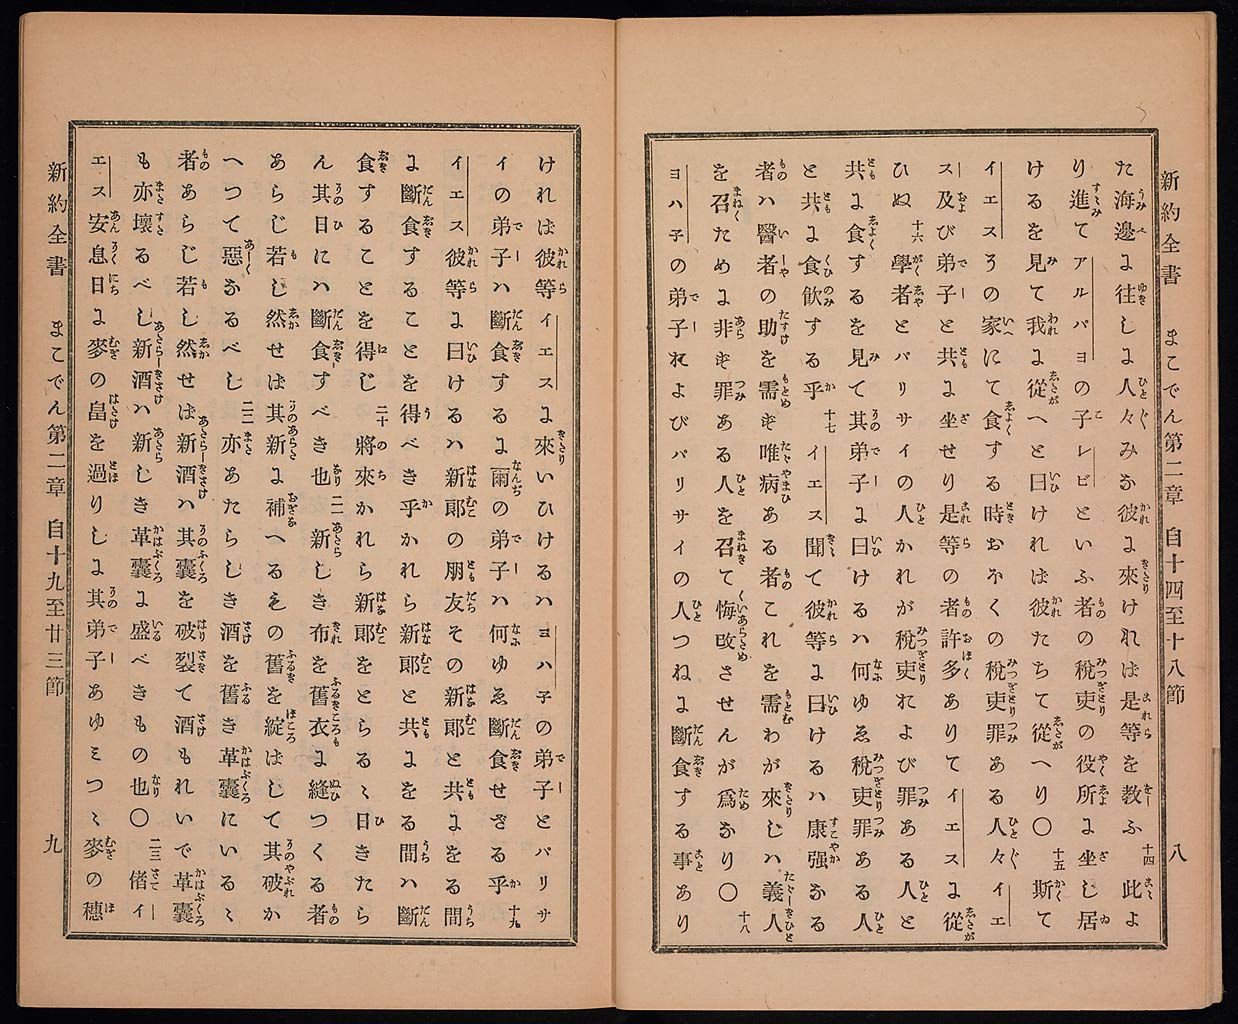 新約全書 まこでん第二章 自十四至十八節 八
た海邊よ往しよ人々みな彼よ來けれは是等を教ふ十四此よ
り進てアルパヨの子レビといふ者の稅吏の役所よ坐し居
けるを見て我よ從へと曰けれは彼たちて從へり〇十五斯て
イエスその家にて食する時おほくの稅吏罪ある人々イエ
ス及び弟子と共よ坐せり是等の者許多ありてイエスよ從
ひぬ十六學者とパリサイの人かれが稅吏および罪ある人と
共よ食するを見て其弟子よ曰けるハ何ゆゑ稅吏罪ある人
と共よ食飮する乎十七イエス聞て彼等よ曰けるハ康强なる
者ハ醫者の助を需ず唯病ある者これを需わが來しハ義人
を召ために非ず罪ある人を召て悔改させんが爲なり〇十八
ヨハ子の弟子およびパリサイの人つねよ斷食する事あり
けれは彼等イエスよ來いひけるハヨハ子の弟子とパリサ
イの弟子ハ斷食するよ爾の弟子ハ何ゆゑ斷食せざる乎十九
イエス彼等よ曰けるハ新郎の朋友その新郎と共よをる間
よ斷食することを得べき乎かれら新郎と共よをる間ハ斷
食することを得じ二十將來かれら新郎をとらるゝ日きたら
ん其日にハ斷食すべき也二一新しき布を舊衣よ縫つくる者
あらじ若し然せは其新よ補へるもの舊を綻はして其破か
へつて惡なるべし二二亦あたらしき酒を舊き革囊にいるゝ
者あらじ若し然せは新酒ハ其囊を破裂て酒もれいで革囊
も亦壞るべし新酒ハ新しき革囊よ盛べきもの也〇二三偖イ
エス安息日よ麥の畠を過りしよ其弟子あゆミつゝ麥の穗
新約全書 まこでん第二章 自十九至廿三節 九